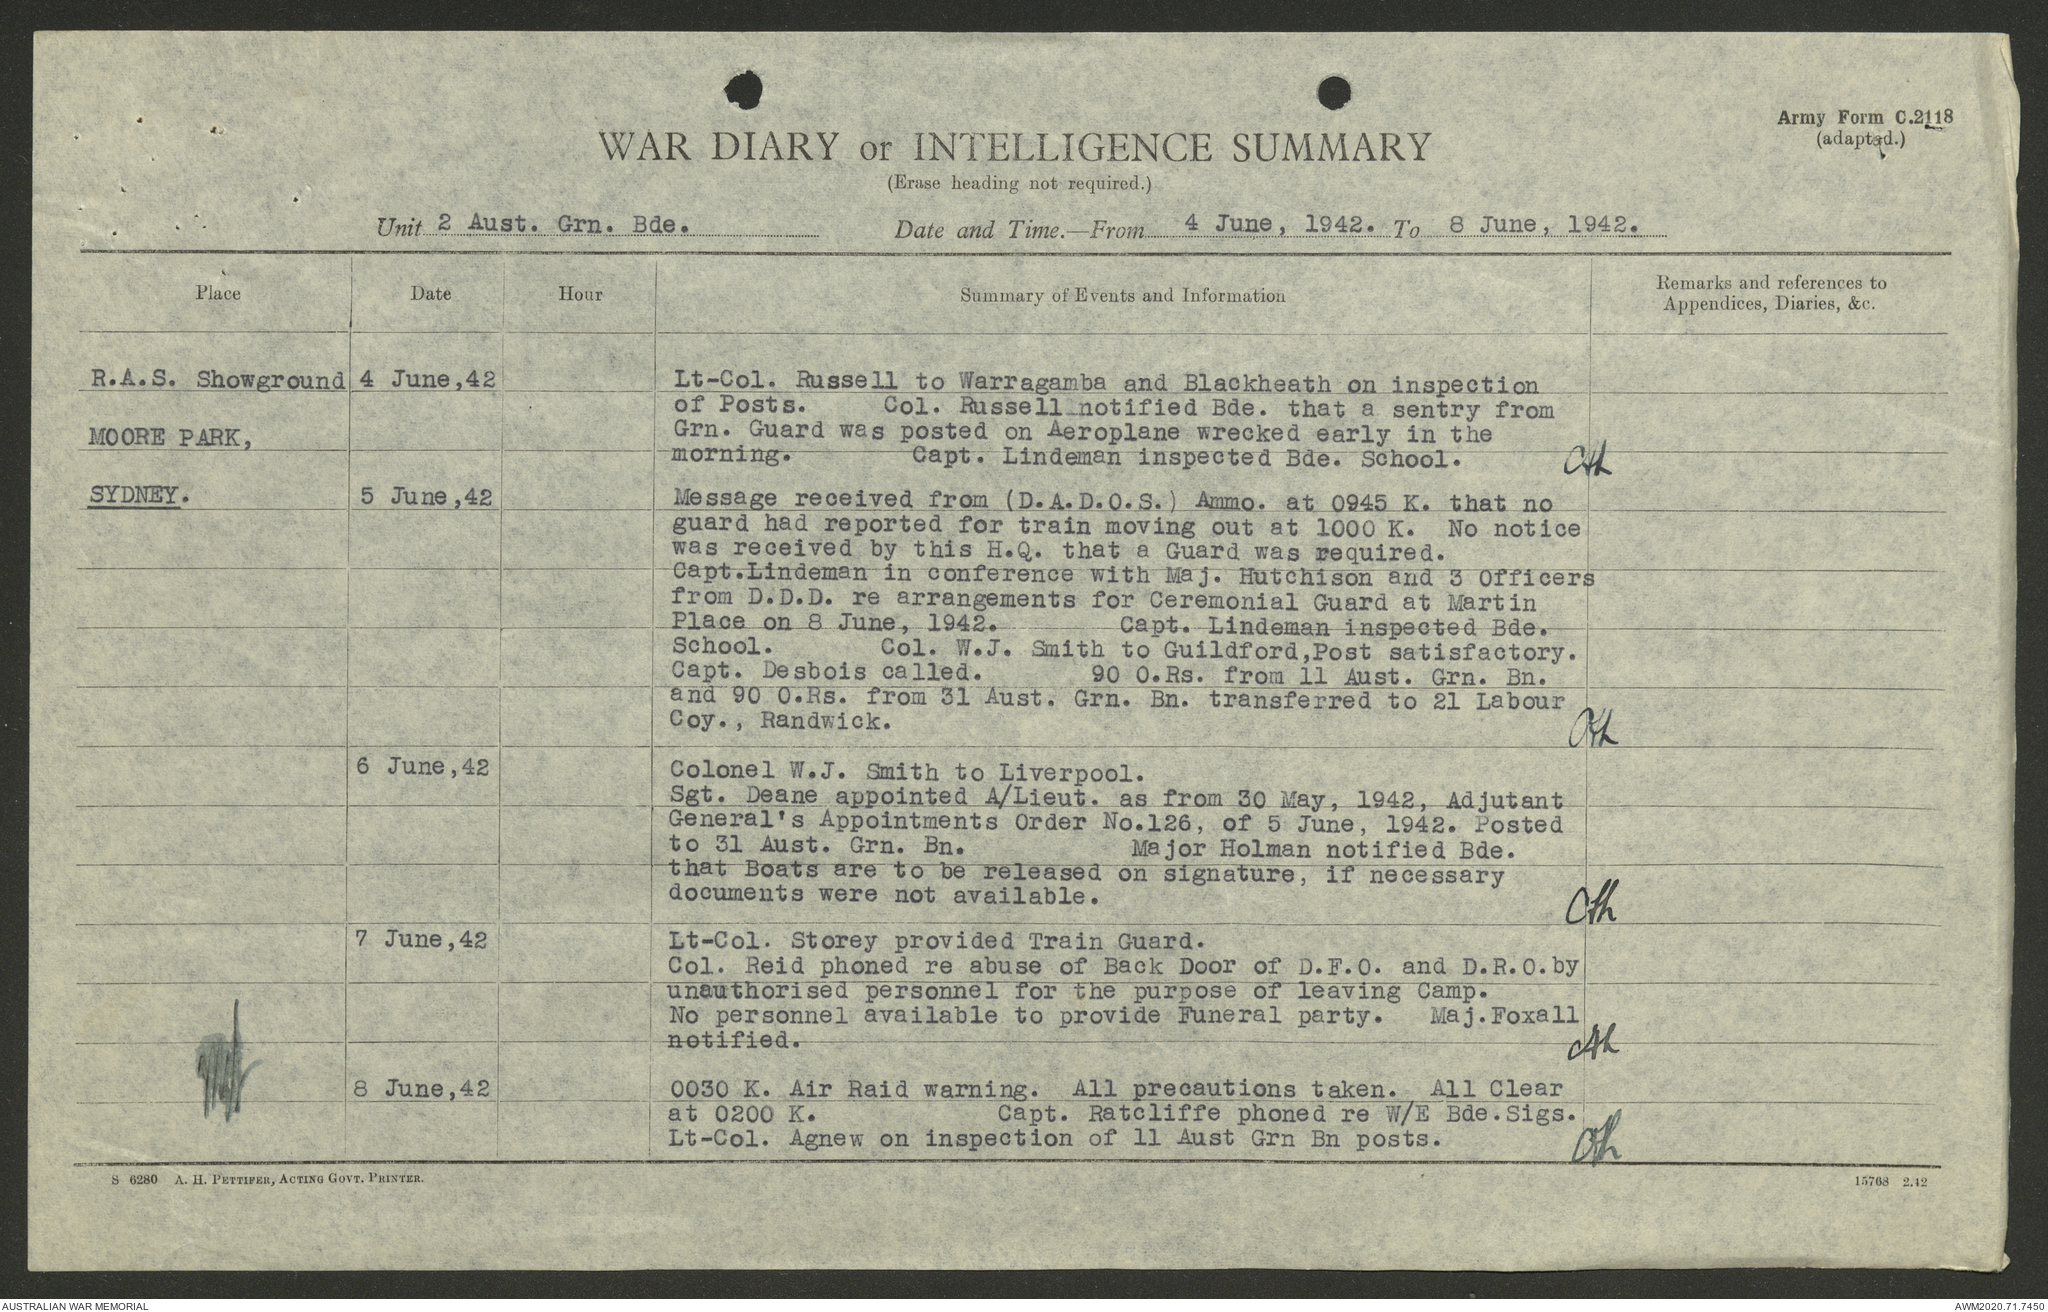 Army Form C.2118
(adapted.)
WAR DIARY or INTELLIGENCE SUMMARY
(Erase heading not required.)
Unit 2 Aust. Grn. Bde. Date and Time.—From 4 June, 1942. To 8 June, 1942.
Place Date Hour Summary of Events and Information Remarks and references to
Appendices, Diaries, &c.
R.A.S. Showground 4 June,42 Lt-Col. Russell to Warragamba and Blackheath on inspection
of Posts. Col. Russell notified Bde. that a sentry from
MOORE PARK, Grn. Guard was posted on Aeroplane wrecked early in the
morning. Capt. Lindeman inspected Bde. School.
SYDNEY. 5 June,42 Message received from (D.A.D.O.S.) Ammo. at 0945 K. that no
guard had reported for train moving out at 1000 K. No notice
was received by this H.Q. that a Guard was required.
Capt.Lindeman in conference with Maj. Hutchison and 3 Officers
from D.D.D. re arrangements for Ceremonial Guard at Martin
Place on 8 June, 1942. Capt. Lindeman inspected Bde.
School. Col. W.J. Smith to Guildford,Post satisfactory.
Capt. Desbois called. 90 O.Rs. from 11 Aust. Grn. Bn.
and 90 O.Rs. from 31 Aust. Grn. Bn. transferred to 21 Labour
Coy., Randwick.
6 June,42 Colonel W.J. Smith to Liverpool.
Sgt. Deane appointed A/Lieut. as from 30 May, 1942, Adjutant
General's Appointments Order No.126, of 5 June, 1942. Posted
to 31 Aust. Grn. Bn. Major Holman notified Bde.
that Boats are to be released on signature, if necessary
documents were not available.
7 June,42 Lt-Col. Storey provided Train Guard.
Col. Reid phoned re abuse of Back Door of D.F.O. and D.R.O.by
unauthorised personnel for the purpose of leaving Camp.
No personnel available to provide Funeral party. Maj.Foxall
notified.
8 June,42 0030 K. Air Raid warning. All precautions taken. All Clear
at 0200 K. Capt. Ratcliffe phoned re W/E Bde.Sigs.
Lt-Col. Agnew on inspection of 11 Aust Grn Bn posts.
S 6280 A. H. PETTIFER, ACTING GOVT. PRINTER. 15768 2.42
AUSTRALIAN WAR MEMORIAL AWM2020.71.7450